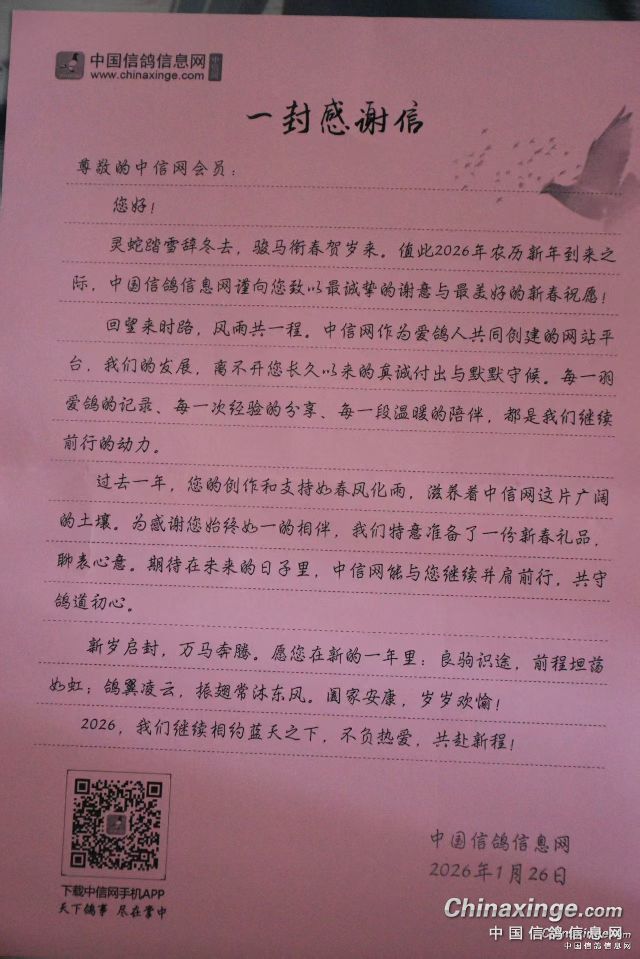 中国信鸽信息网
www.chinaxinge.com
一封感谢信
尊敬的中信网会员：
您好！
灵蛇踏雪辞冬去，骏马衔春贺岁来。值此2026年农历新年到来之
际，中国信鸽信息网谨向您致以最诚挚的谢意与最美好的新春祝愿！
回望来时路，风雨共一程。中信网作为爱鸽人共同创建的网站平
台，我们的发展，离不开您长久以来的真诚付出与默默守候。每一羽
爱鸽的记录、每一次经验的分享、每一段温暖的陪伴，都是我们继续
前行的动力。
过去一年，您的创作和支持如春风化雨，滋养着中信网这片广阔
的土壤。为感谢您始终如一的相伴，我们特意准备了一份新春礼品，
聊表心意。期待在未来的日子里，中信网能与您继续并肩前行，共守
鸽道初心。
新岁启封，万马奔腾。愿您在新的一年里：良驹识途，前程坦荡
如虹；鸽翼凌云，振翅常沐东风。阖家安康，岁岁欢愉！
2026，我们继续相约蓝天之下，不负热爱，共赴新程！
中国信鸽信息网
2026年1月26日
下载中信网手机APP
天下鸽事 尽在掌中
Chinaxinge.com
中国信鸽信息网
中国信鸽信息网